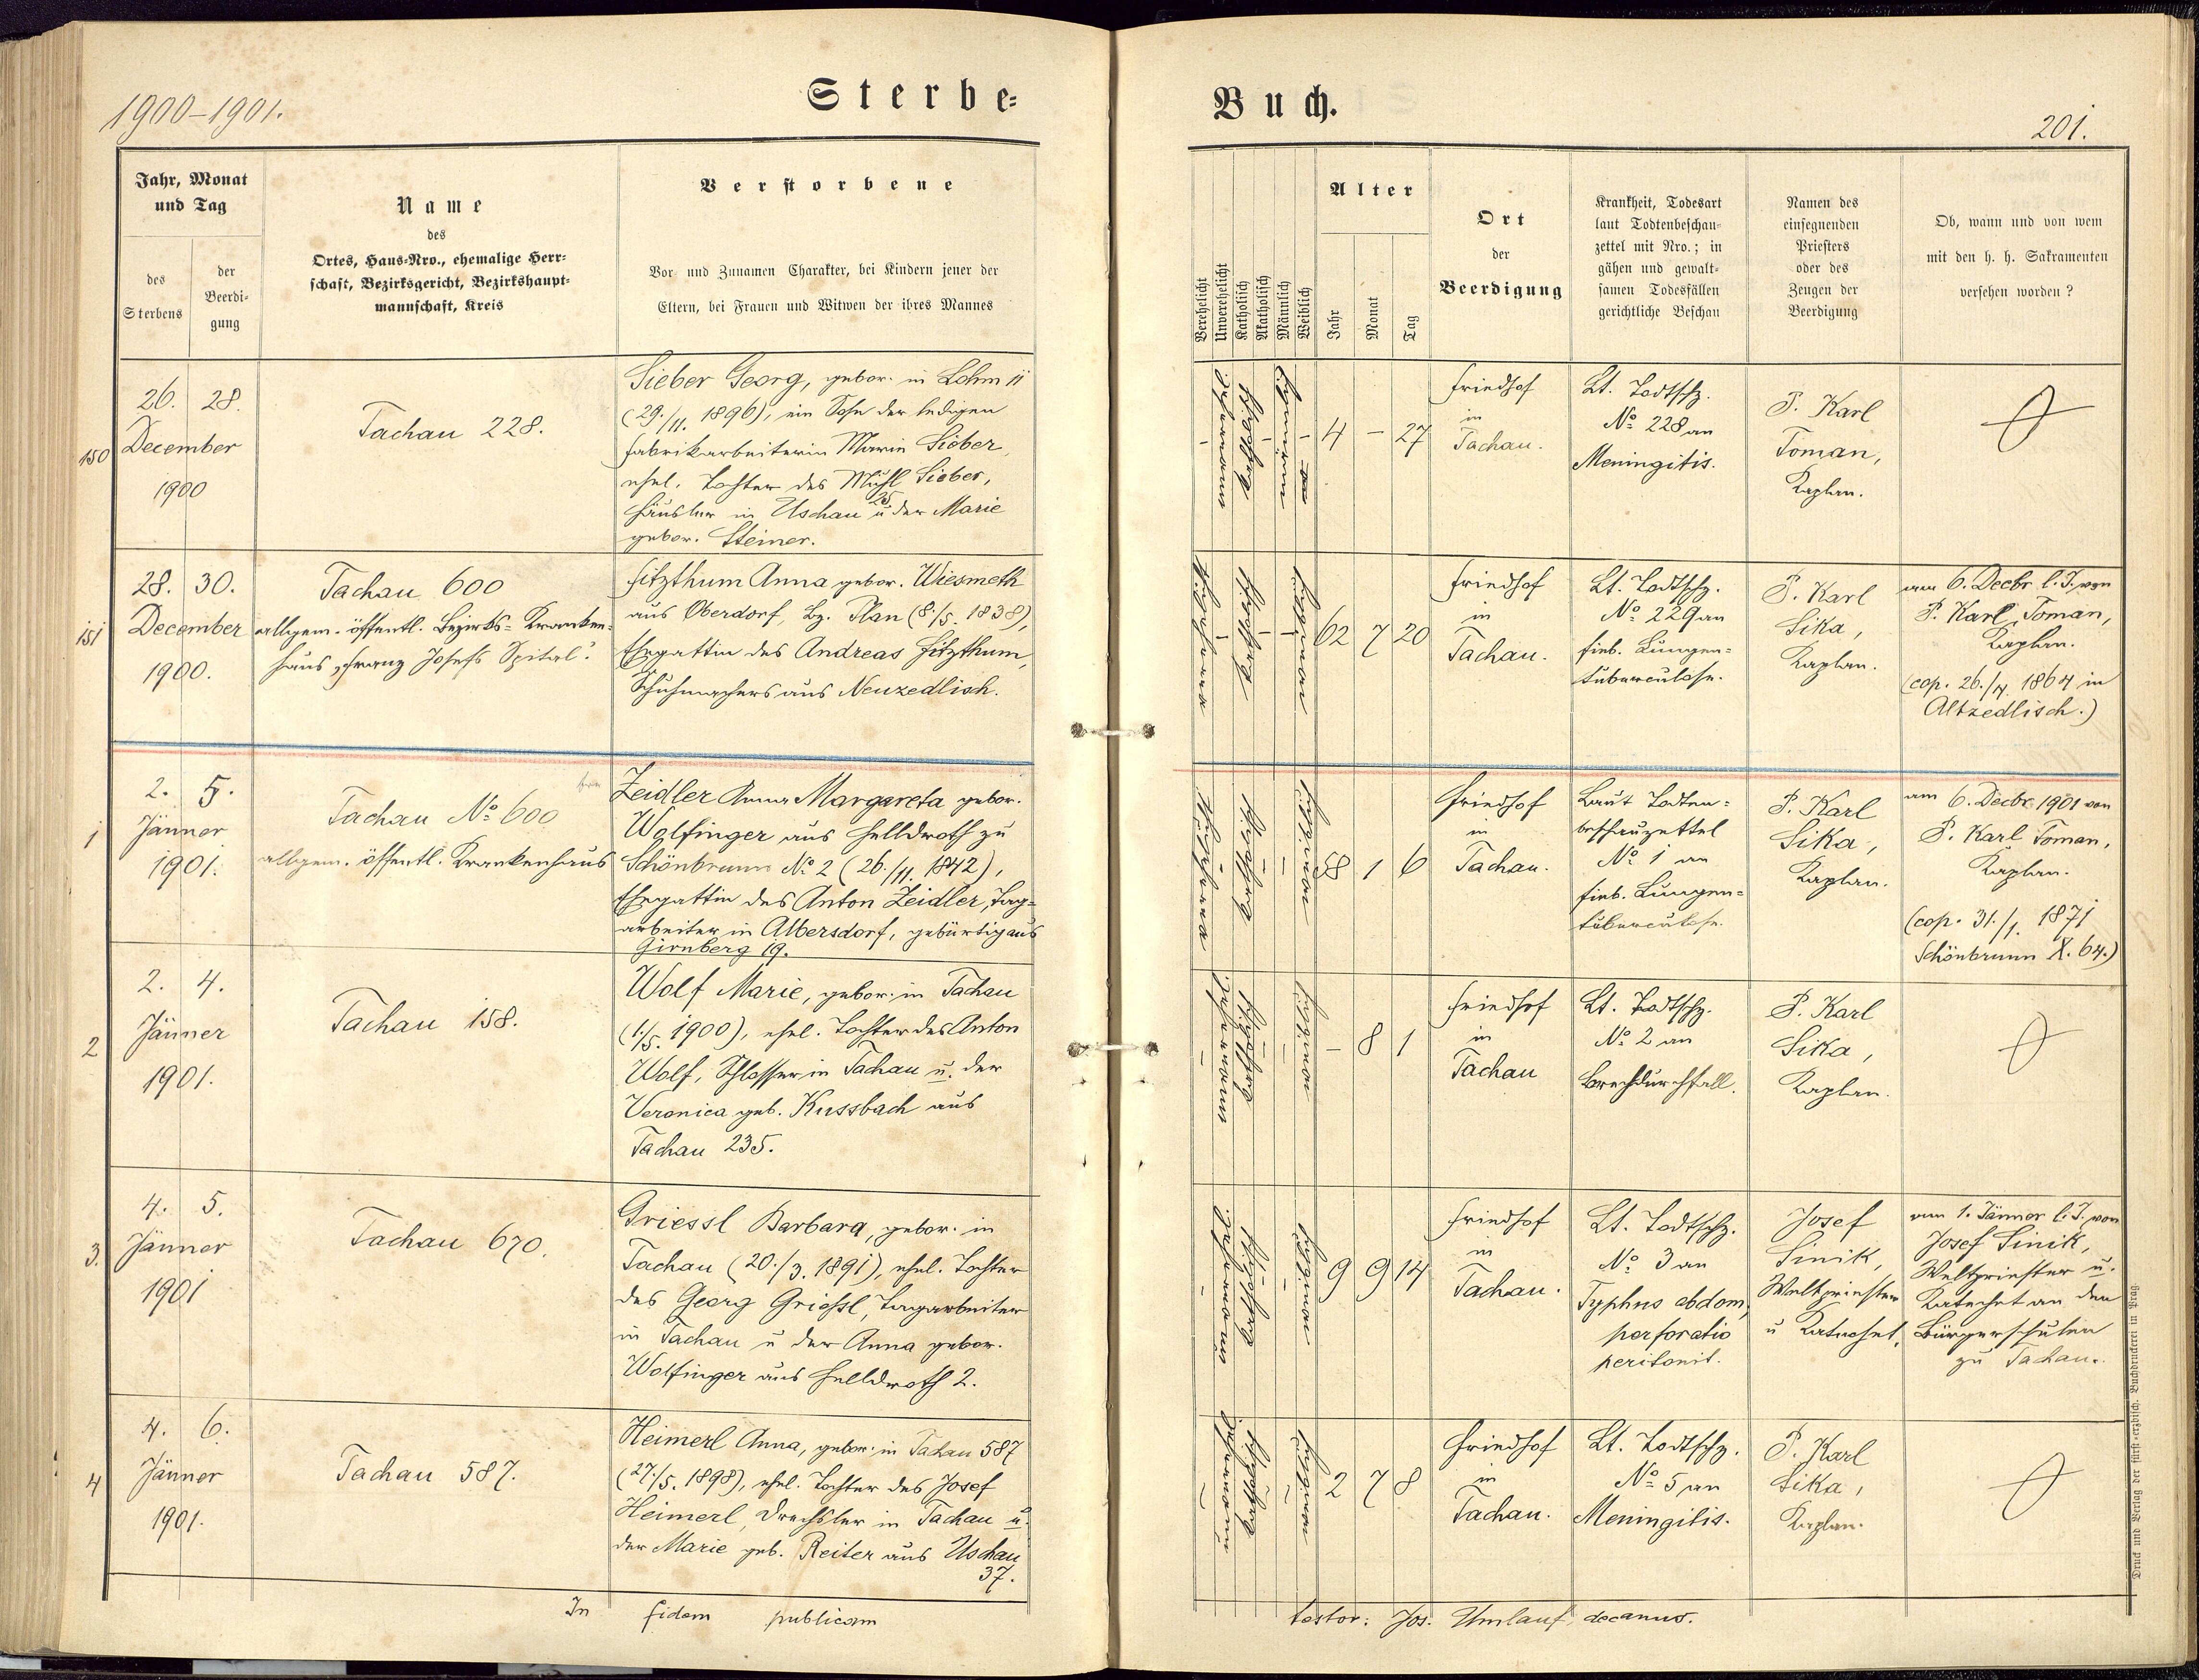 1900-1901.
Sterbe-
Buch.
201.
Jahr, Monat
und Tag
des
Sterbens
der
Beerdi-
gung
Name
des
Ortes, Haus-Nro., ehemalige Herr-
schaft, Bezirksgericht, Bezirkshaupt-
mannschaft, Kreis
Verstorbene
Vor- und Zunamen Charakter, bei Kindern jener der
Eltern, bei Frauen und Witwen der ihres Mannes
Verehelicht
Unverehelicht
Katholisch
Akatholisch
Männlich
Weiblich
Alter
Jahr
Monat
Tag
Ort
der
Beerdigung
Krankheit, Todesart
laut Todtenbeschau-
zettel mit Nro.; in
gähen und gewalt-
samen Todesfällen
gerichtliche Beschau
Namen des
einsegnenden
Priesters
oder des
Zeugen der
Beerdigung
Ob, wann und von wem
mit den h. h. Sakramenten
versehen worden?
150
26. 28.
December
1900
Tachau 228.
Sieber Georg, gebor. in Lohm 11
(29./11. 1896), ein Sohn der ledigen
Fabrikarbeiterin Marie Sieber,
ehel. Tochter des Michl Sieber,
Häusler in Uschau 25 u der Marie
gebor. Steiner.
4 - 27
Friedhof
in
Tachau.
Lt. Todtschz.
No 228 an
Meningitis.
P. Karl
Toman,
Kaplan.
151
28. 30.
December
1900.
Tachau 600
allgem. öffentl. Bezirks-Kranken-
haus "Franz Josefs Spital".
Fitzthum Anna gebor. Wiesmeth
aus Oberdorf, Bz. Plan (8./5. 1838),
Ehegattin des Andreas Fitzthum,
Schuhmachers aus Neuzedlisch.
62 7 20
Friedhof
in
Tachau.
Lt. Todtschz.
No 229 an
Lungen-
tuberculose.
P. Karl
Sika,
Kaplan.
am 6. Decbr. l. J. von
P. Karl Toman,
Kaplan.
(cop. 26./4. 1864 in
Altzedlisch.)
1
2. 5.
Jänner
1901.
Tachau No 600
allgem. öffentl. Krankenhaus
Zeidler Anna Margareta gebor.
Wolfinger aus Helldroth zu
Schönbrunn No 2 (26./11. 1842),
Ehegattin des Anton Zeidler, Tag-
arbeiter in Albersdorf, gebürtig aus
Girnberg 19.
58 1 6
Friedhof
in
Tachau.
Laut Todten-
beschauzettel
No 1 an
Lungen-
tuberculose.
P. Karl
Sika,
Kaplan.
am 6. Decbr. 1901 von
P. Karl Toman,
Kaplan.
(cop. 31./1. 1871
Schönbrunn X. 64.)
2
2. 4.
Jänner
1901.
Tachau 158.
Wolf Marie, gebor. in Tachau
(1./5. 1900), ehel. Tochter des Anton
Wolf, Schlosser in Tachau u. der
Veronica geb. Kussbach aus
Tachau 235.
- 8 1
Friedhof
in
Tachau
Lt. Todtschz.
No 2 an
Brechdurchfall.
P. Karl
Sika,
Kaplan.
3.
4. 5.
Jänner
1901
Tachau 670.
Griessl Barbara, gebor. in
Tachau (20./3. 1891), ehel. Tochter
des Georg Griessl, Tagarbeiter
in Tachau u der Anna gebor.
Wolfinger aus Helldroth 2.
9 9 14
Friedhof
in
Tachau.
Lt. Todtschz.
No 3 an
Typhus abdom,
perforatio
peritonit.
Josef
Sinik,
Weltpriester
u Katechet.
am 1. Jänner l. J. von
Josef Sinik,
Weltpriester u.
Katechet an den
Bürgerschulen
zu Tachau.
4
4. 6.
Jänner
1901.
Tachau 587.
Heimerl Anna, gebor. in Tachau 587
(27./5. 1898), ehel. Tochter des Josef
Heimerl, Drechsler in Tachau u.
der Marie geb. Reiter aus Uschau
37.
2 7 8
Friedhof
in
Tachau.
Lt. Todtschz.
No 5 an
Meningitis.
P. Karl
Sika,
Kaplan.
In fidem publicam
testor: Jos. Umlauf, decanus.
Druck und Verlag der fürst-erzbisch. Buchdruckerei in Prag.